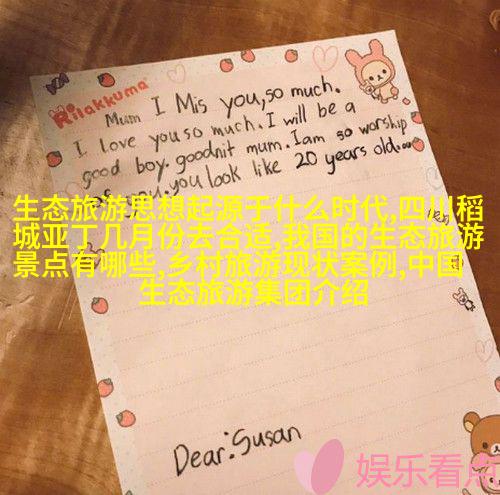 Rilakkuma
Mum I Mis you, so much.
I love you so much. I will be a
good boy. goodnit mum. I am so worship
you. you look like 20 years old.
生态旅游思想起源于什么时代,四川稻
城亚丁几月份去合适,我国的生态旅游
景点有哪些,乡村旅游现状案例,中国
生态旅游集团介绍
Dear: Susan
娱乐看点